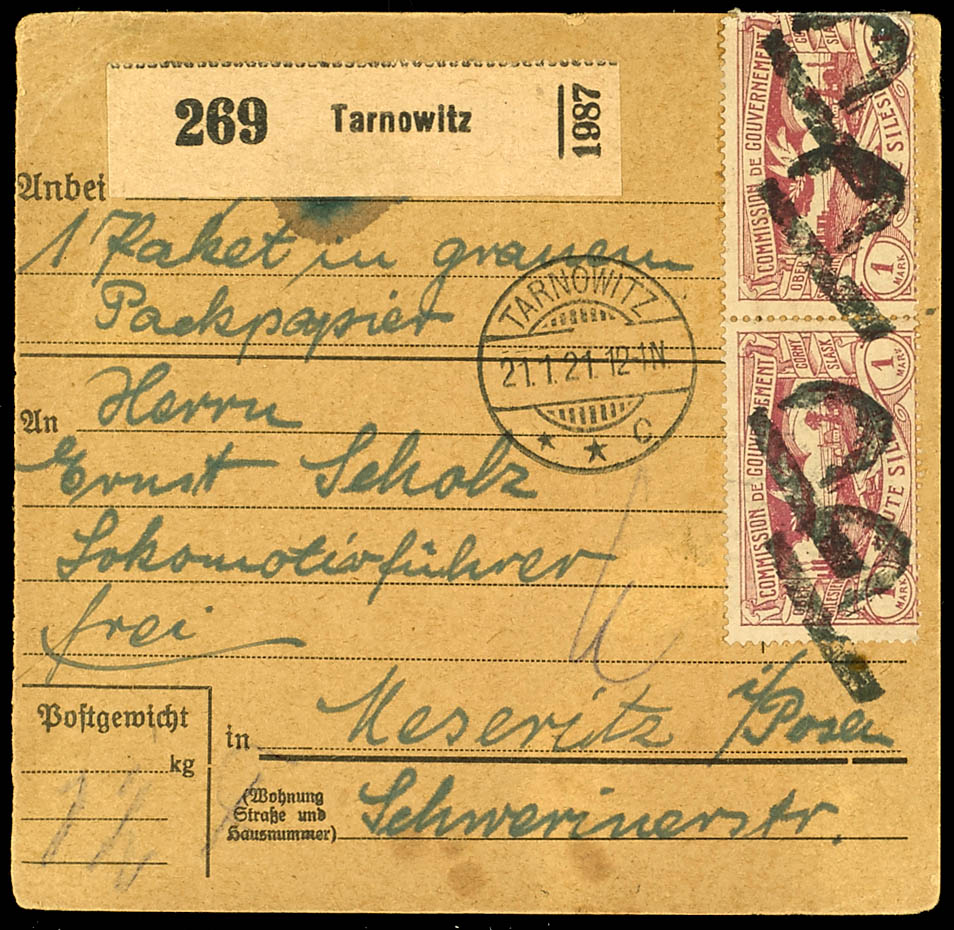 269 Tarnowitz 1987
Anbei
1 Paket in grauem
Packpapier
TARNOWITZ
21.1.21.12-1N.
* * C
An Herrn
Ernst Scholz
Lokomotivführer
frei
Postgewicht
kg
in Meseritz i/Posen
(Wohnung
Straße und
Hausnummer)
Schwerinerstr.
COMMISSION DE GOUVERNEMENT
1
MARK
COMMISSION DE GOUVERNEMENT
GORNY
SLASK
1
MARK